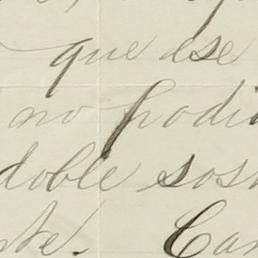 que ese
no podi
doble sos
te. Can